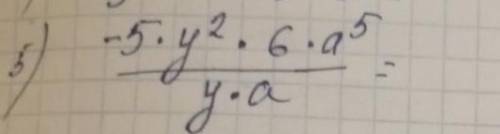 5) -5·y²·6·a⁵
y·a =